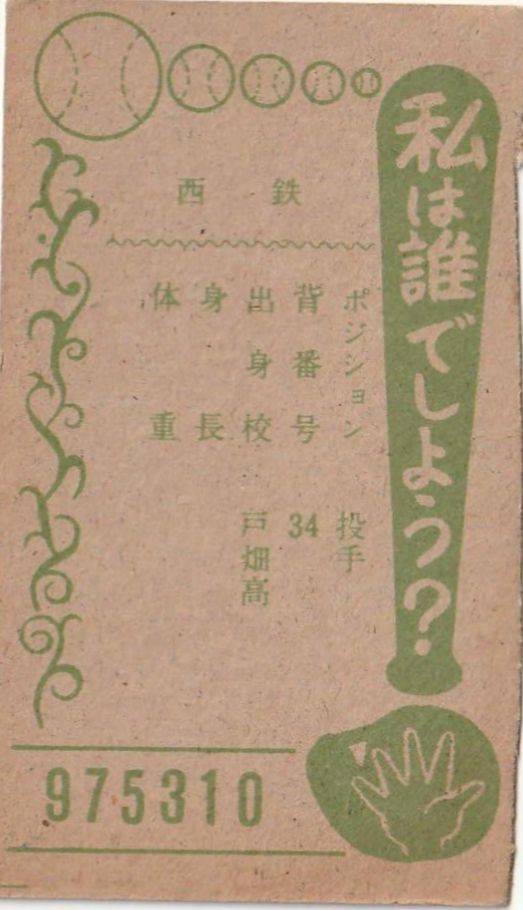 私は誰でしょう？
西鉄
ポジション 投手
背番号 34
出身校 戸畑高
身長
体重
975310